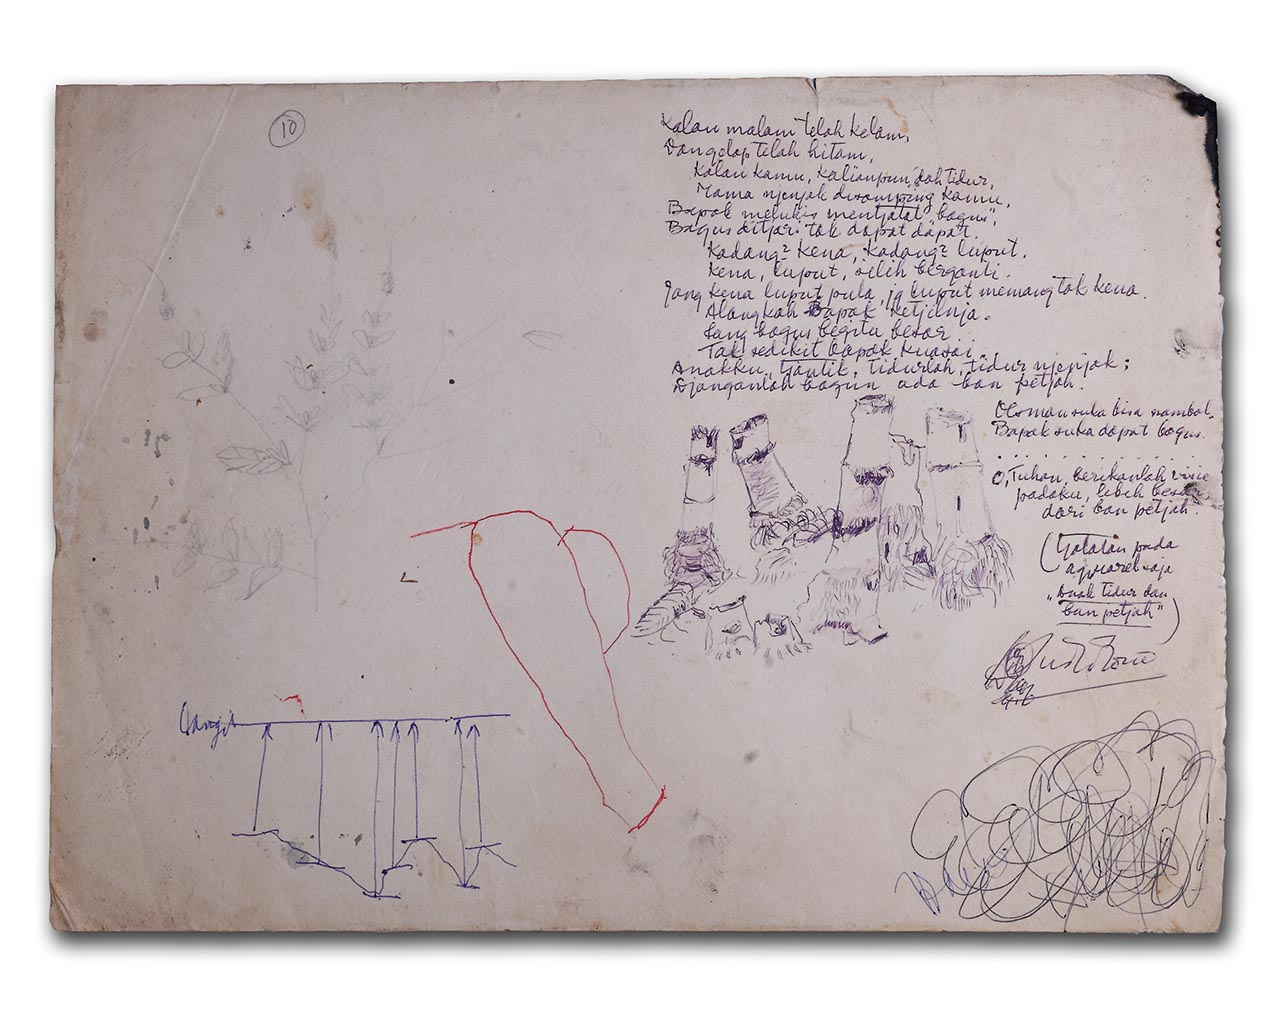 10
Kalau malam telah kelam,
Dan gelap telah hitam,
Kalau kamu, kalianpun dah tidur,
Mama njenjak disamping kamu,
Bapak melukis mentjatat "bagus",
Bagus ditjari tak dapat dapat.
Kadang2 kena, kadang2 luput.
Kena, luput, silih berganti.
Jang kena luput pula, jg luput memang tak kena.
Alangkah Bapak ketjilnja.
Jang bagus begitu besar
Tak sedikit bapak kuasai.
Anakku, tjantik, tidurlah, tidur njenjak;
Djanganlah bagun ada ban petjah.
Osman suka bisa nambal,
Bapak suka dapat bagus.
. . . . . . . . . . . . . . .
O, Tuhan, berikanlah visie
padaku, lebih besar
dari ban petjah.
(Tjatatan pada
aquarel saja
"Anak tidur dan
ban petjah")
Langit